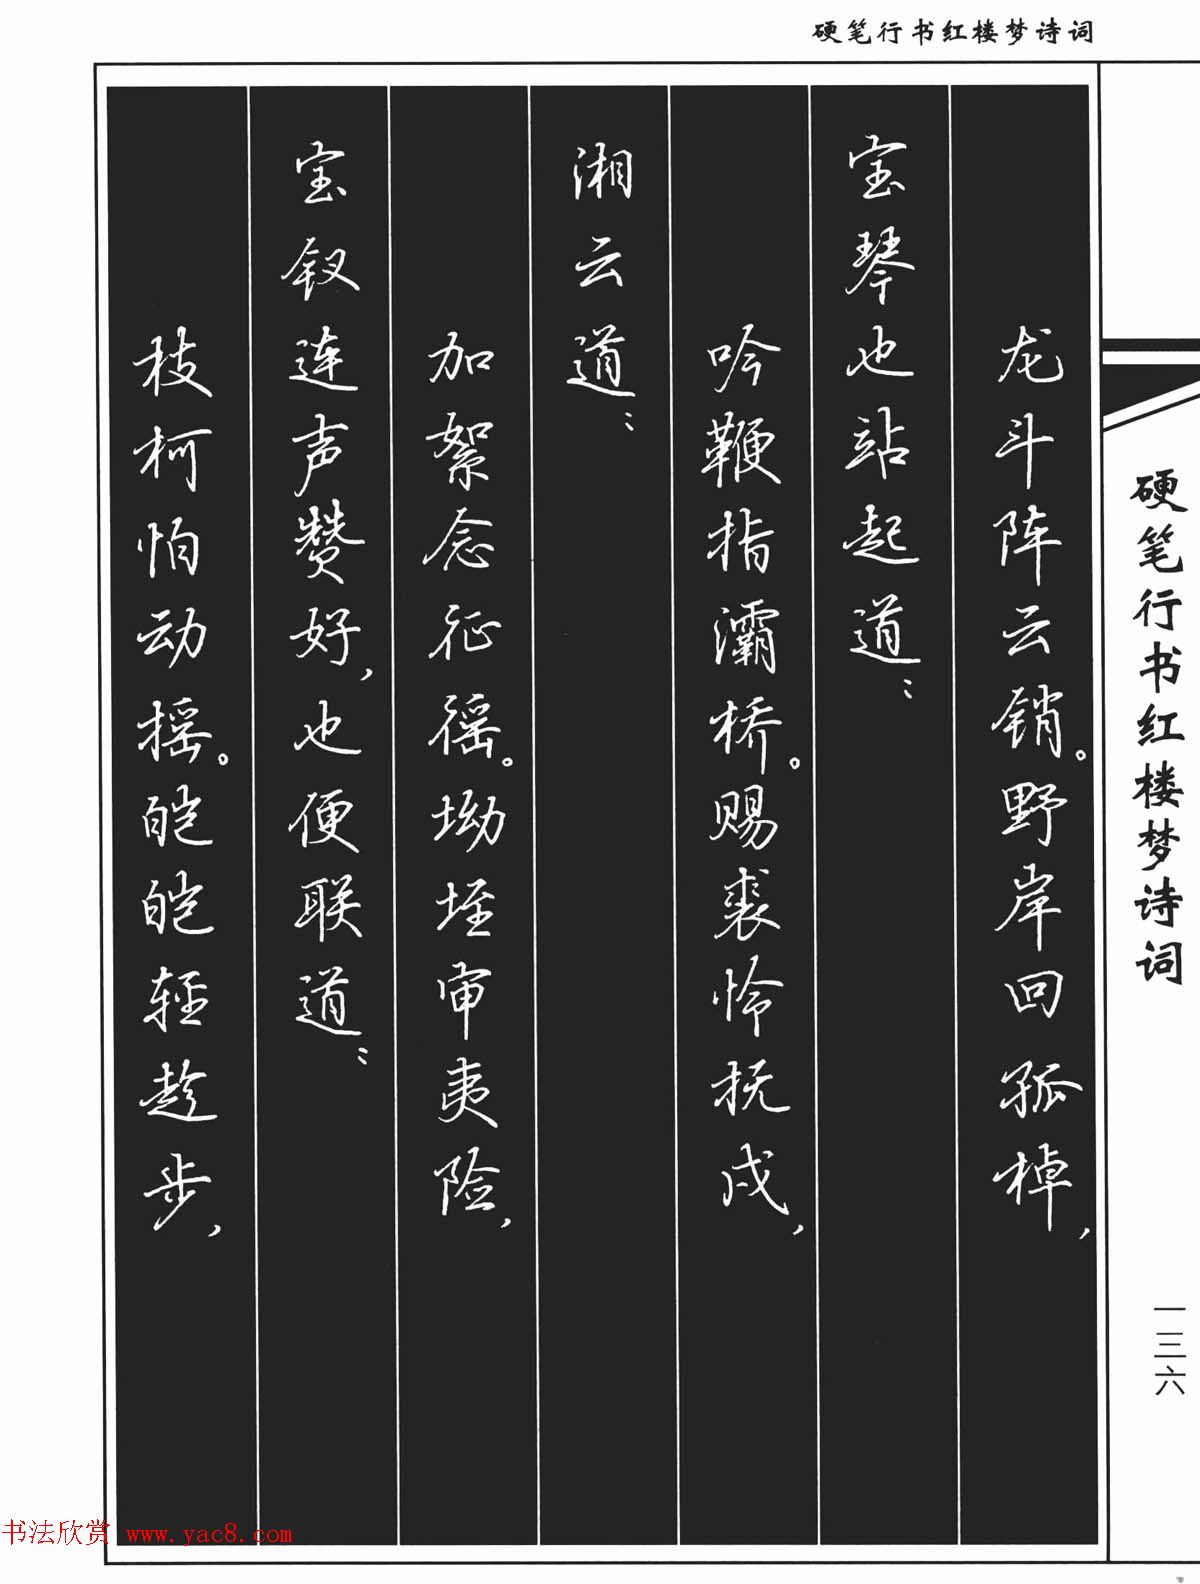 硬笔行书红楼梦诗词
龙斗阵云销。野岸回孤棹，
宝琴也站起道：
吟鞭指灞桥。赐裘怜抚戍，
湘云道：
加絮念征徭。坳垤审夷险，
宝钗连声赞好，也便联道：
枝柯怕动摇。皑皑轻趁步，
硬笔行书红楼梦诗词
一三六
书法欣赏 www.yac8.com